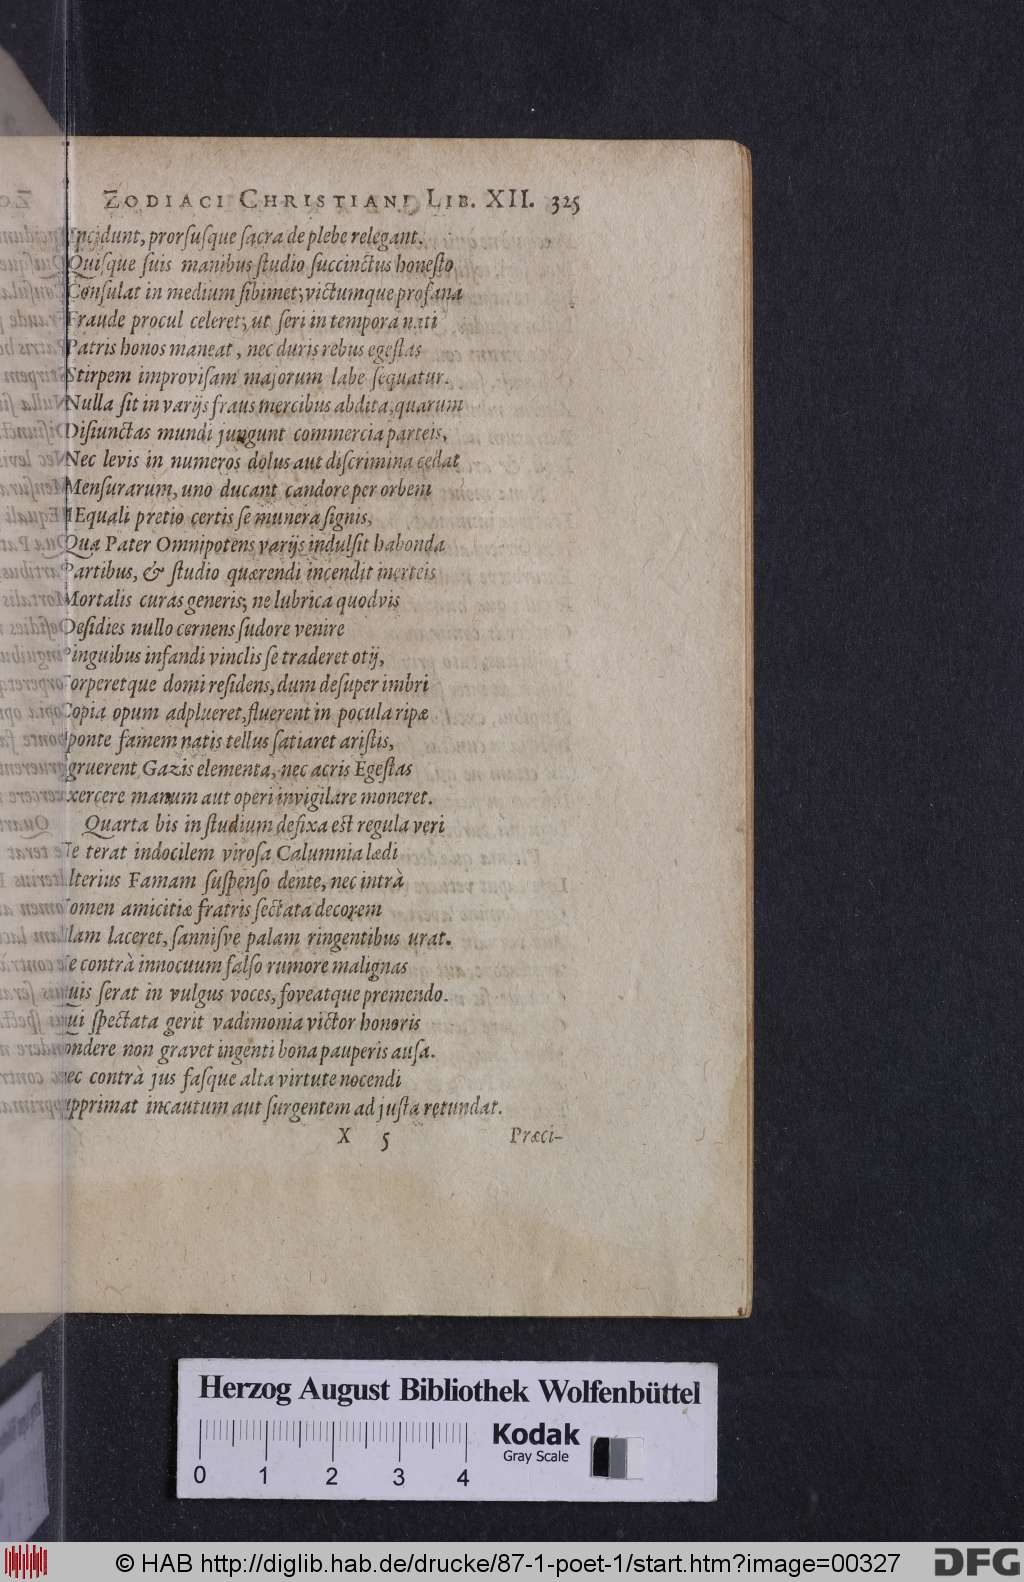 ZODIACI CHRISTIANI LIB. XII. 325
Incidunt, prorsusque sacra de plebe relegant.
Quisque suis manibus studio succinctus honesto
Consulat in medium sibimet; victumque profana
Fraude procul celeret; ut seri in tempora nati
Patris honos maneat, nec duris rebus egestas
Stirpem improvisam majorum labe sequatur.
Nulla sit in varijs fraus mercibus abdita, quarum
Disiunctas mundi jungunt commercia parteis,
Nec levis in numeros dolus aut discrimina cedat
Mensurarum, uno ducant candore per orbem
AEquali pretio certis se munera signis,
Qua Pater Omnipotens varijs indulsit habonda
Partibus, & studio quærendi incendit inerteis
Mortalis curas generis; ne lubrica quodvis
Desidies nullo cernens sudore venire
Pinguibus infandi vinclis se traderet otij,
Torperetque domi residens, dum desuper imbri
Copia opum adplueret, fluerent in pocula ripæ
Sponte famem natis tellus satiaret aristis,
gruerent Gazis elementa, nec acris Egestas
xercere manum aut operi invigilare moneret.
Quarta bis in studium defixa est regula veri
Ne terat indocilem virosa Calumnia lædi
lterius Famam suspenso dente, nec intrà
Nomen amicitiæ fratris sectata decorem
lam laceret, sannisve palam ringentibus urat.
Ne contrà innocuum falso rumore malignas
uis serat in vulgus voces, foveatque premendo.
ui spectata gerit vadimonia victor honoris
ondere non gravet ingenti bona pauperis ausa.
ec contrà jus fasque alta virtute nocendi
pprimat incautum aut surgentem ad justa retundat.
X 5 Præci-
Herzog August Bibliothek Wolfenbüttel
Kodak
Gray Scale
0 1 2 3 4
© HAB http://diglib.hab.de/drucke/87-1-poet-1/start.htm?image=00327 DFG